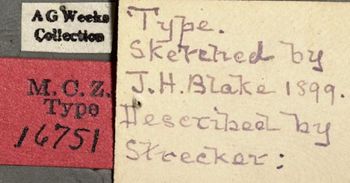 A G Weeks
Collection
M.C.Z.
Type
16751
Type.
Sketched by
J.H. Blake 1899.
Described by
Strecker: